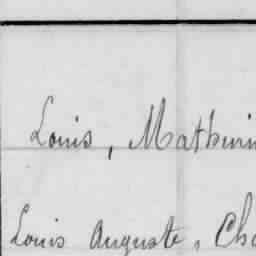 Louis, Mathurin
Louis Auguste, Cha